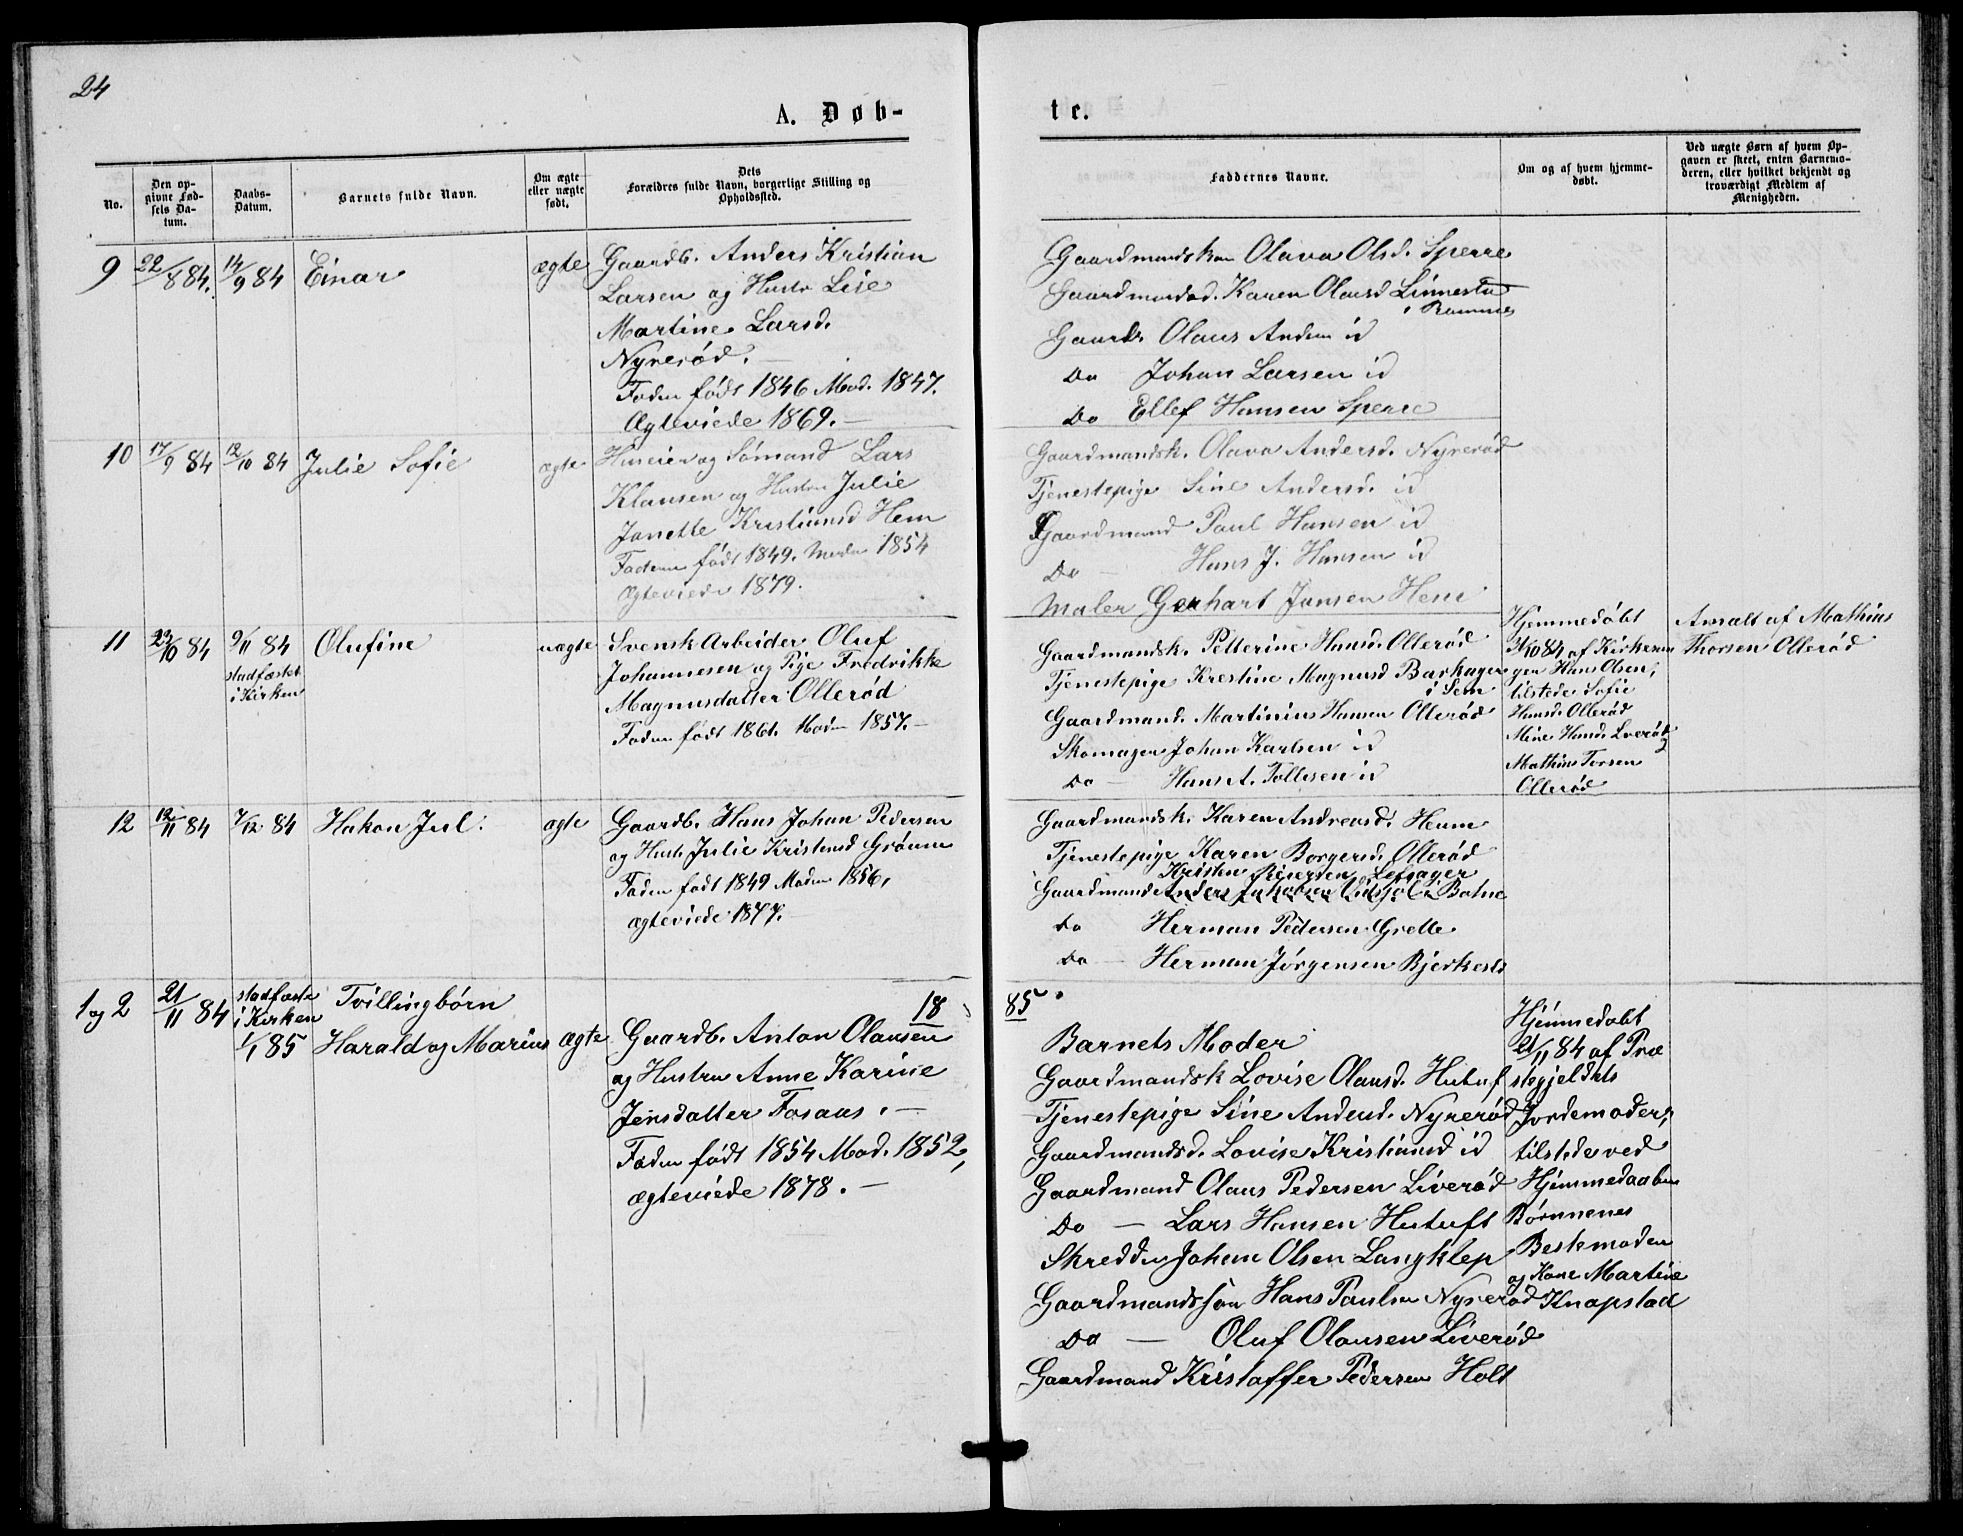 24
A. Døb-
te.
No.
Den op-
givne Fød-
sels Da-
tum.
Daabs-
Datum.
Barnets fulde Navn.
Om ægte
eller uægte
født.
Dets
Forældres fulde Navn, borgerlige Stilling og
Opholdssted.
Faddernes Navne.
Om og af hvem hjemme-
døbt.
Ved uægte Børn af hvem Op-
gaven er skeet, enten Barnemo-
deren, eller hvilket bekjendt og
troværdigt Medlem af
Menigheden.
9 22/8 84. 14/9 84 Einar ægte Gaardb. Anders Kristian
Larsen og Hustr Lise
Martine Larsd.
Nyrerød. —
Faden født 1846 Mod. 1847.
Ægteviede 1869. —
Gaardmandskon Olava Olsd. Sperre
Gaardmandsd. Karen Olausd Linnestu
i Ramnes
Gaardb. Olaus Andersen id
Do Johan Larsen id
Do Ellef Hansen Sperre
10 17/9 84 12/10 84 Julie Sofie ægte Huseier og Sømand Lars
Klausen og Hustru Julie
Janette Kristiansd Hem
Faderen født 1849. Moder 1854
Ægteviede 1879.
Gaardmandsk. Olava Andersd. Nyrerød
Tjenestepige Sine Andersd. id
Gaardmand Paul Hansen id
Do — Hans J. Hansen id
Maler Gerhart Jansen Hem
11 23/10 84 9/11 84 Olufine uægte Svensk Arbeider Oluf
stadfæstet
i Kirken
Johannesen og Pige Fredrikke
Magnusdatter Ollerød
Faden født 1861. Moder 1857. —
Gaardmandsk. Petterine Hansd. Ollerød
Tjenestepige Krestine Magnusd Barkager
i Sem
Gaardmand. Martinius Hansen Ollerød
Skomager Johan Karlsen id
Do — Hans A. Tollesen id
Hjemmedøbt
/10 84 af Kirkesan
gen Hans Olsen,
tilstede Sofie
Hansd. Ollerød
Mine Hansd. Lverød
Mathias Torsen
Ollerød
Anmeldt af Mathias
Thorsen Ollerød
12 12/11 84 7/12 84 Hakon Jul. ægte Gaardb. Hans Johan Pedersen
og Hustr Julie Kristensd Grøum
Faden født 1849 Moden 1856,
ægteviede 1877. —
Gaardmandsk. Karen Andreasd. Heum
Tjenestepige Karen Borgersd. Ollerød
Kristen Lefsager
Gaardmand Anders Jakobsen i Botne
Do Herman Pedersen Grette
Do — Herman Jørgensen Bjerkest
1885.
1 og 2 21/11 84 stadfæste
i Kirken
1/1 85 Tvillingbørn
Harald og Marius ægte Gaardb. Anton Olausen
og Hustru Anne Karine
Jensdatter Fosaas. —
Faden født 1854 Mod. 1852,
ægteviede 1878. —
Barnets Moder
Gaardmandsk Lovise Olausd. Hutuft
Tjenestepige Sine Andersd. Nyrerød
Gaardmandsd. Lovise Kristiansd id
Gaardmand Olaus Pedersen Liverød
Do — Lars Hansen Hutuft
Skredder Johan Olsen Langklep
Gaardmandssøn Hans Paulsen Nyrerød
Do — Oluf Olausen Liverød
Gaardmand Kristoffer Pedersen Holt
Hjemmedøbt
21/11 84 af Præ
stegjeldets
Jordemoder,
tilstede ved
Hjemmedaaben
Børnenes
Bestemoder
og Kone Martine
Knapstad